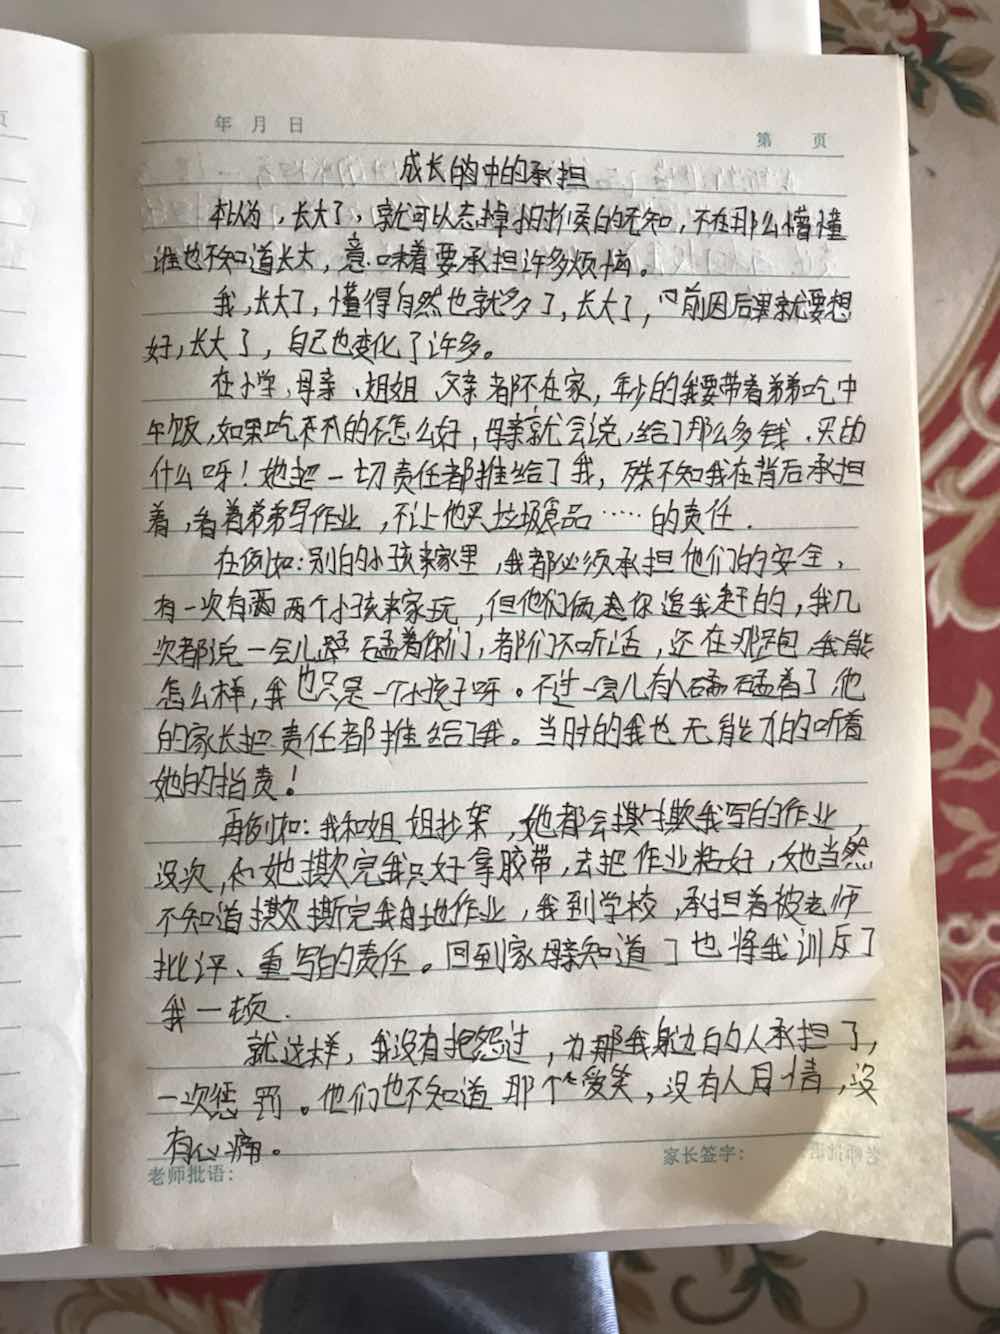 年 月 日
第 页
成长的中的承担
本以为，长大了，就可以忘掉小时候的无知，不在那么懵懂
谁也不知道长大，意味着要承担许多烦恼。
我，长大了，懂得自然也就多了，长大了，前因后果就要想
好，长大了，自己也变化了许多。
在小学，母亲、姐姐、父亲都不在家，年少的我要带着弟弟吃中
午饭，如果吃的不怎么好，母亲就会说，给了那么多钱，买的
什么呀！她把一切责任都推给了我，殊不知我在背后承担
着，看着弟弟写作业，不让他买垃圾食品……的责任．
在例如：别的小孩来家里，我都必须承担他们的安全，
有一次有两个小孩来家玩，但他们俩总你追我赶的，我几
次都说一会儿磕着你们，都们不听话，还在那跑，我能
怎么样，我也只是一个小孩子呀。不过一会儿有人磕着了，他
的家长把责任都推给了我。当时的我也无能力的听着
她的指责！
再例如：我和姐姐抄架，她都会撕我写的作业，
没次，她撕完我只好拿胶带，去把作业粘好，她当然
不知道撕完我自地作业，我到学校，承担着被老师
批评、重写的责任。回到家母亲知道了也将我训斥了
我一顿．
就这样，我没有抱怨过，为那我身边的人承担了，
一次惩罚。他们也不知道那个爱笑，没有人同情，没
有心痛。
老师批语：
家长签字：